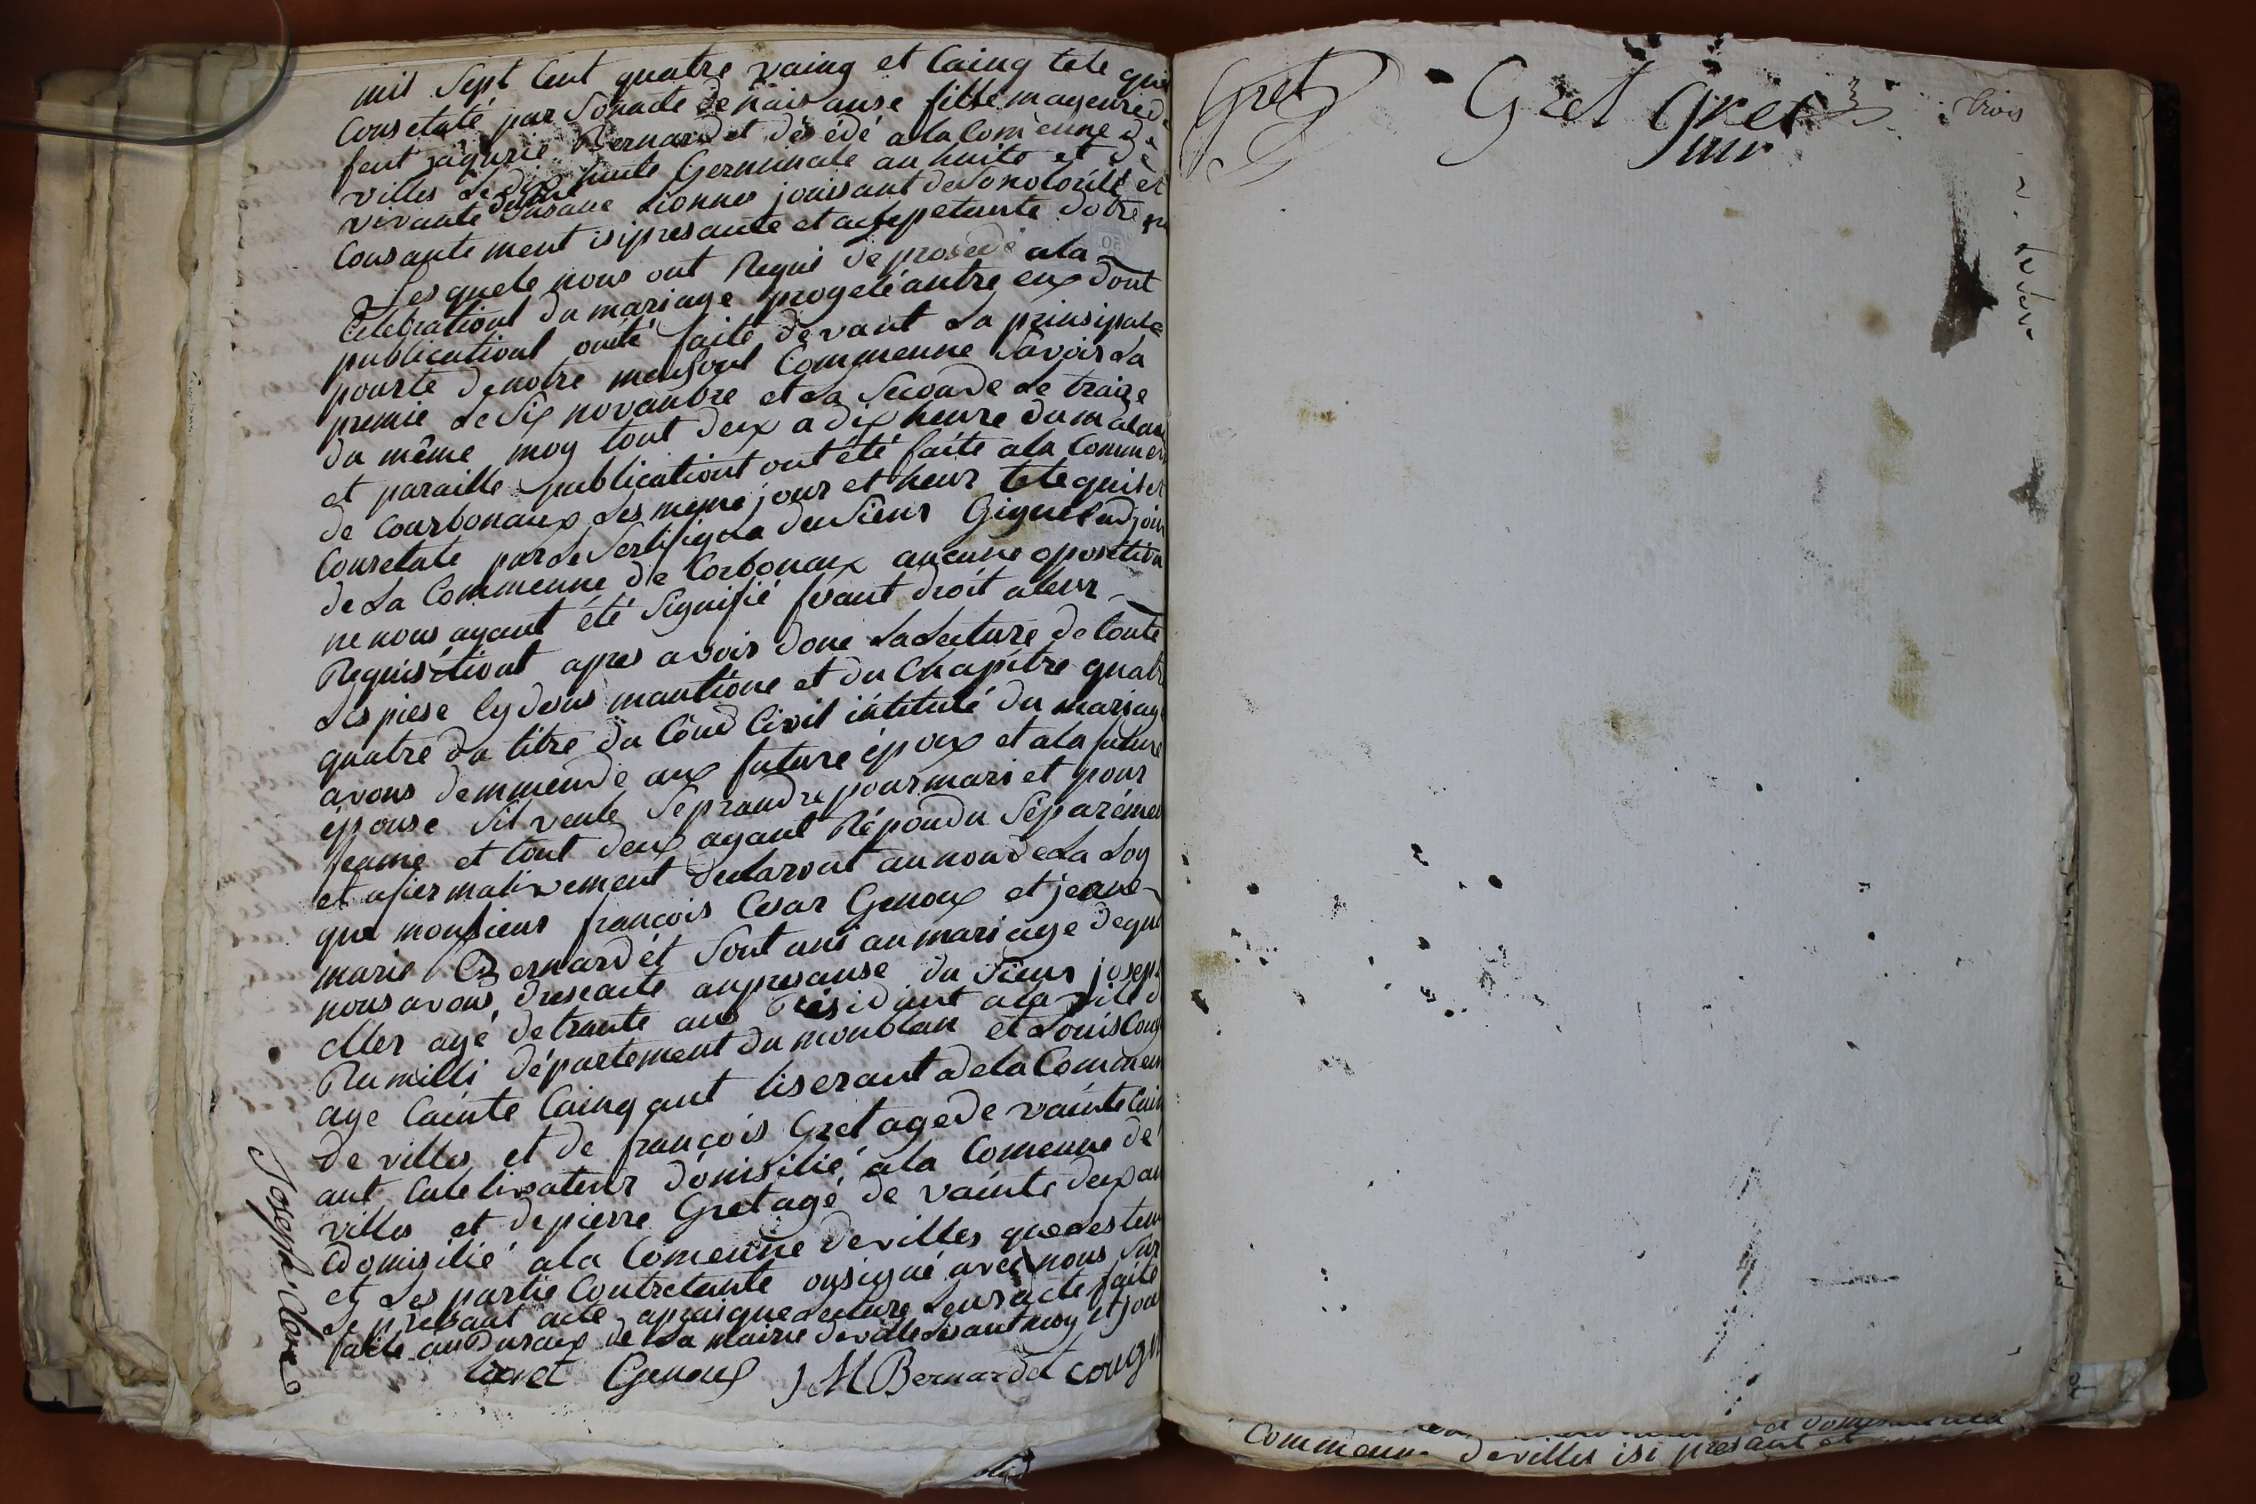 mil Sept Cent quatre vaing et Caing tele que
Consetaté par Sonacte de naisanse fille mageure de
feut jaquerie Bernardet desédé ala Comenne de
villes Le dix huite Germinale an huite et de
vivante dame Susane Lionner jouissant de Sonotorité et
Consante ment isi presante et acseptante dotre
Les quele nous ont Requi de prosedé ala
Célébrationt du mariage progeté antre eux dont
publicationt onété faite devant La prinsipale
pourte denotre maisont Commenne Savoir La
premie Le Six novanbre et La Seconde Le traize
du même moy tout deux a dix heure dumatain
et paraille publicationt ont été faite ala Commen
de Courbonaux Les meme jour et heur tele quiset
Consetate par Le Sertifiqua du Sieur Giguet adjoin
de La Commenne de Corbonaux aucune oposition
ne nous ayant été Signifié fesant droit aleur
Requisitiont apres avoir done La Lecture de toute
Les piese Cydesus mantione et du Chapitre quatre
quatre du titre du Coud Civil intitulé du mariage
avons demmende aux future époux et ala future
épouse Sil veule Seprandre pour mari et pour
feame et tout deux ayant Répondu Séparémen
et afiermativement declaront aunonde La Loy
que monsieur françois Cesar Genoux et jeane
marie Bernardét Sont uni au mariage dequé
nous avons dreseacte anpresanse du Sieur joseph
Cller agé de trante ans Résidant ala vile de
Rumilli département du monblan et Louis Coug
age Cainte Caing ant tiserant de la Commenn
de villes et de françois Gret agede vainte Cain
ant Culetivateur domisilié ala Comenne de
villes et de pierre Gret agé de vainte deux an
domisilié ala Comenne de villes que Les tem
et Les partie Contretante onsigné avec nous Sur
Le présant acte apraisque Lecture Leurs acte faite
faite au Buraux de La Mairie de ville Lesant moy et jour
Genoux J M Bernardet cougn
Joseph
Gret
Gret Gret
trois
Commenne de villes isi présant et